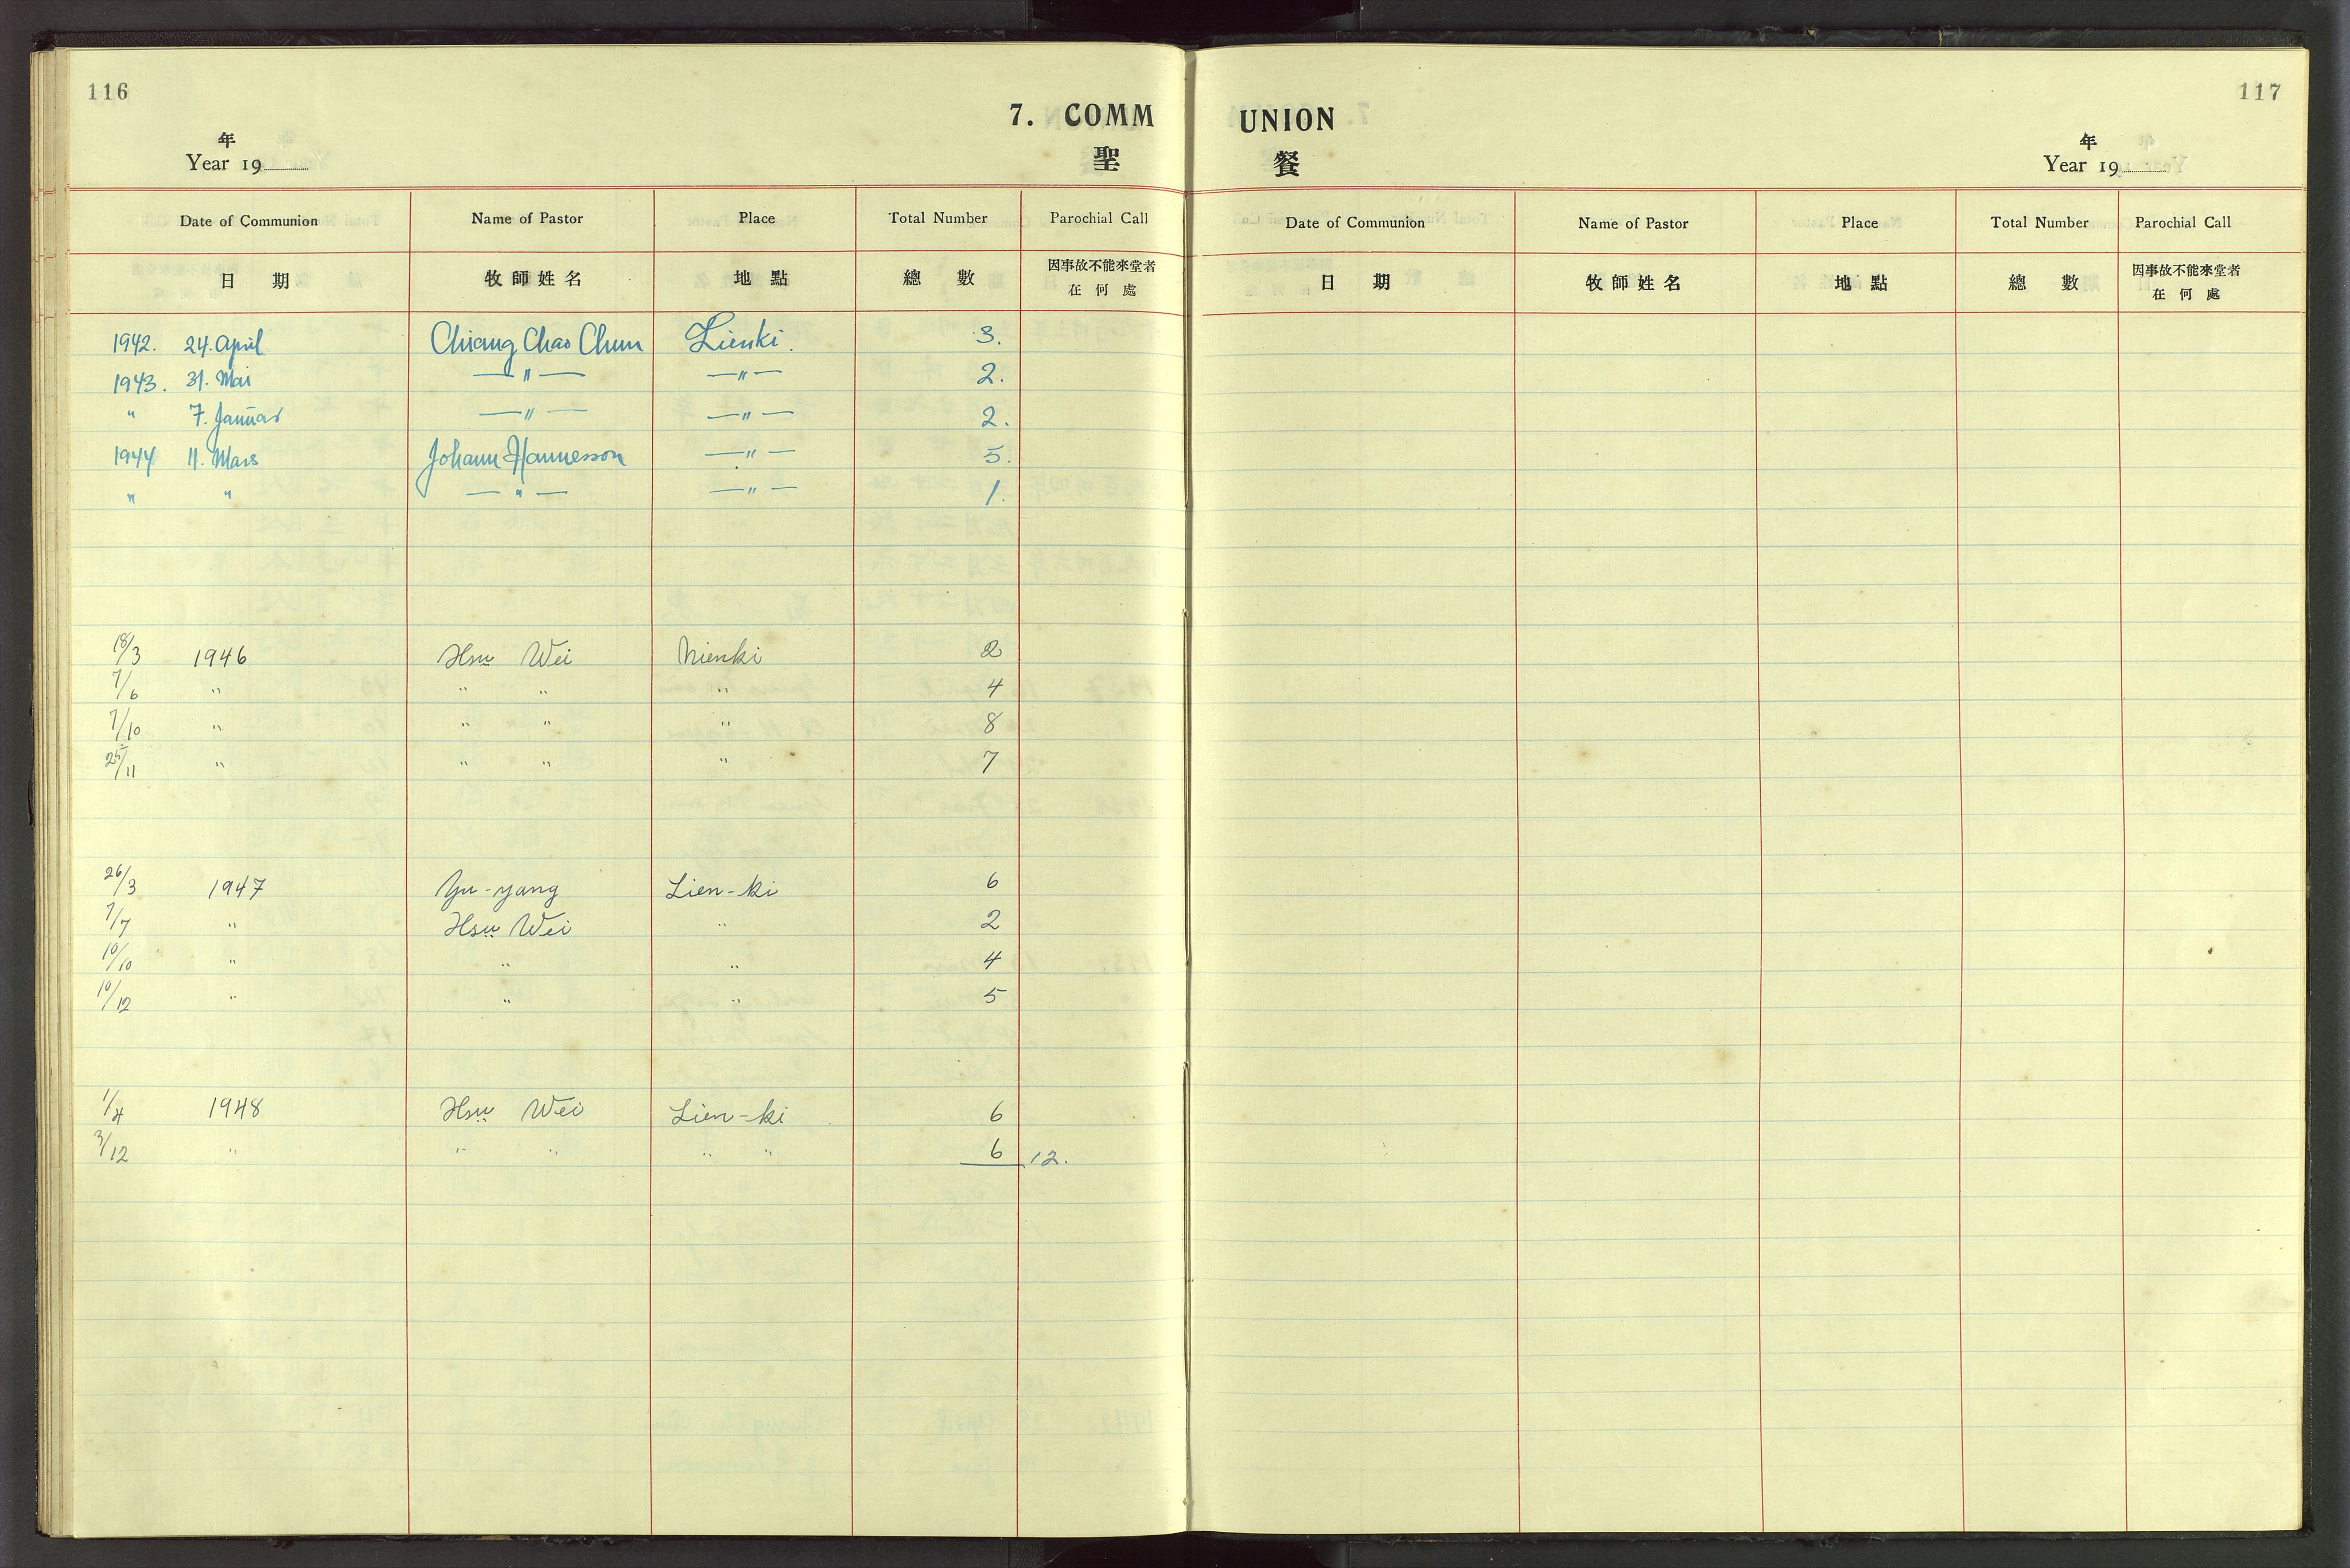 116
7. COMM
年
Year 19
聖
Date of Communion Name of Pastor Place Total Number Parochial Call
日 期 牧師姓名 地點 總數 因事故不能來堂者
在何處
1942. 24. April Chiang Chao Chun Lienki. 3.
1943. 31. Mai —"— —"— 2.
" 7. Januar —"— —"— 2.
1944 11. Mars Johann Hannesson —"— 5.
" " —"— —"— 1.
18/3 1946 Hsu Wei Nienki 2
7/6 " " " " 4
7/10 " " " " 8
25/11 " " " " 7
26/3 1947 Yu-yang Lien-ki 6
7/7 " Hsu Wei " 2
10/10 " " " 4
10/12 " " " 5
1/4 1948 Hsu Wei Lien-ki 6
3/12 " " " " " 6 12.
117
UNION
年
Year 19
餐
Date of Communion Name of Pastor Place Total Number Parochial Call
日 期 牧師姓名 地點 總數 因事故不能來堂者
在何處